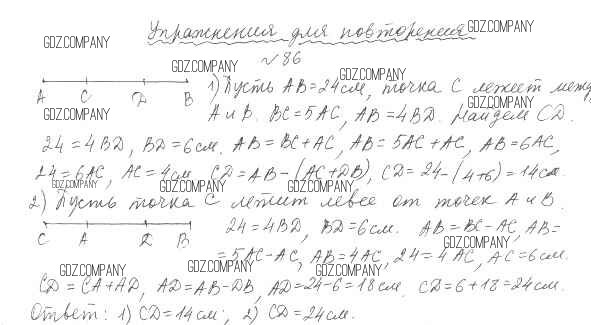 Упражнения для повторения
GDZ.COMPANY
№ 86
GDZ.COMPANY
GDZ.COMPANY
1) Пусть AB = 24 см, точка C лежит между
A C D B
GDZ.COMPANY
A и B. BC = 5AC, AB = 4BD. Найдем CD.
GDZ.COMPANY
24 = 4BD, BD = 6 см. AB = BC + AC, AB = 5AC + AC, AB = 6AC,
GDZ.COMPANY
24 = 6AC, AC = 4 см. CD = AB - (AC + DB), CD = 24 - (4+6) = 14 см.
GDZ.COMPANY GDZ.COMPANY GDZ.COMPANY
2) Пусть точка C лежит левее от точек A и B.
24 = 4BD, BD = 6 см. AB = BC - AC, AB =
C A D B
GDZ.COMPANY
= 5AC - AC, AB = 4AC, 24 = 4AC, AC = 6 см.
GDZ.COMPANY GDZ.COMPANY GDZ.COMPANY
CD = CA + AD, AD = AB - DB, AD = 24 - 6 = 18 см. CD = 6 + 18 = 24 см.
Ответ: 1) CD = 14 см; 2) CD = 24 см.